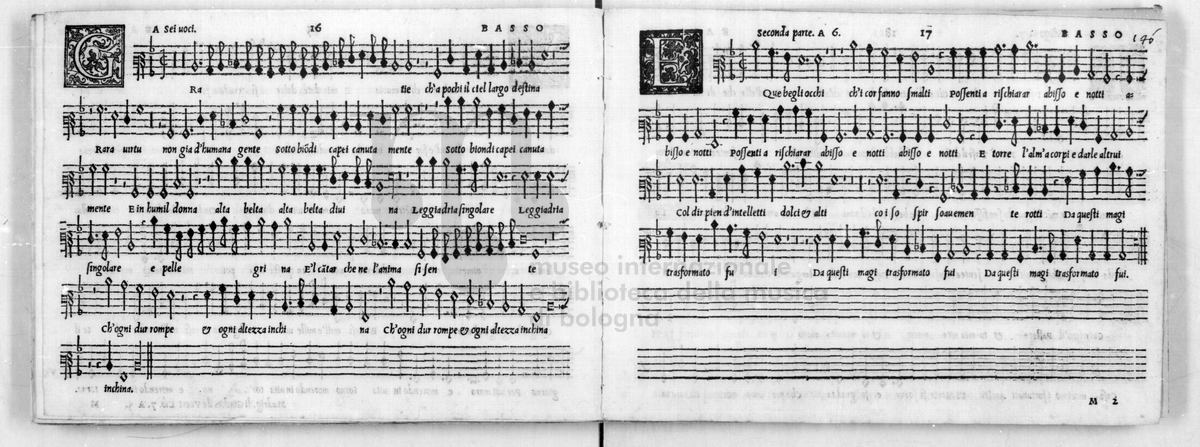 A Sei uoci. 16 BASSO
G
Ra tie ch'a pochi il ciel largo destina
Rara uirtu non gia d'humana gente Sotto biõdi capei canuta mente Sotto biondi capei canuta
mente E in humil donna alta belta alta belta diui na Leggiadria singolare Leggiadria
singolare e pelle gri na E'l cãtar che ne l'anima si sen te
Ch'ogni dur rompe & ogni altezza inchi na Ch'ogni dur rompe & ogni altezza inchina
inchina.
Seconda parte. A 6. 17 BASSO 146
E
Que begli occhi ch'i cor fanno smalti Possenti a rischiarar abisso e notti a=
bisso e notti Possenti a rischiarar abisso e notti abisso e notti E torre l'alm'a corpi e darle altrui
Col dir pien d'intelletti dolci & alti co i so spir soauemen te rotti Da questi magi
trasformato fui Da questi magi trasformato fui Da questi magi trasformato fui.
M 2
museo internazionale
e biblioteca della musica
di bologna